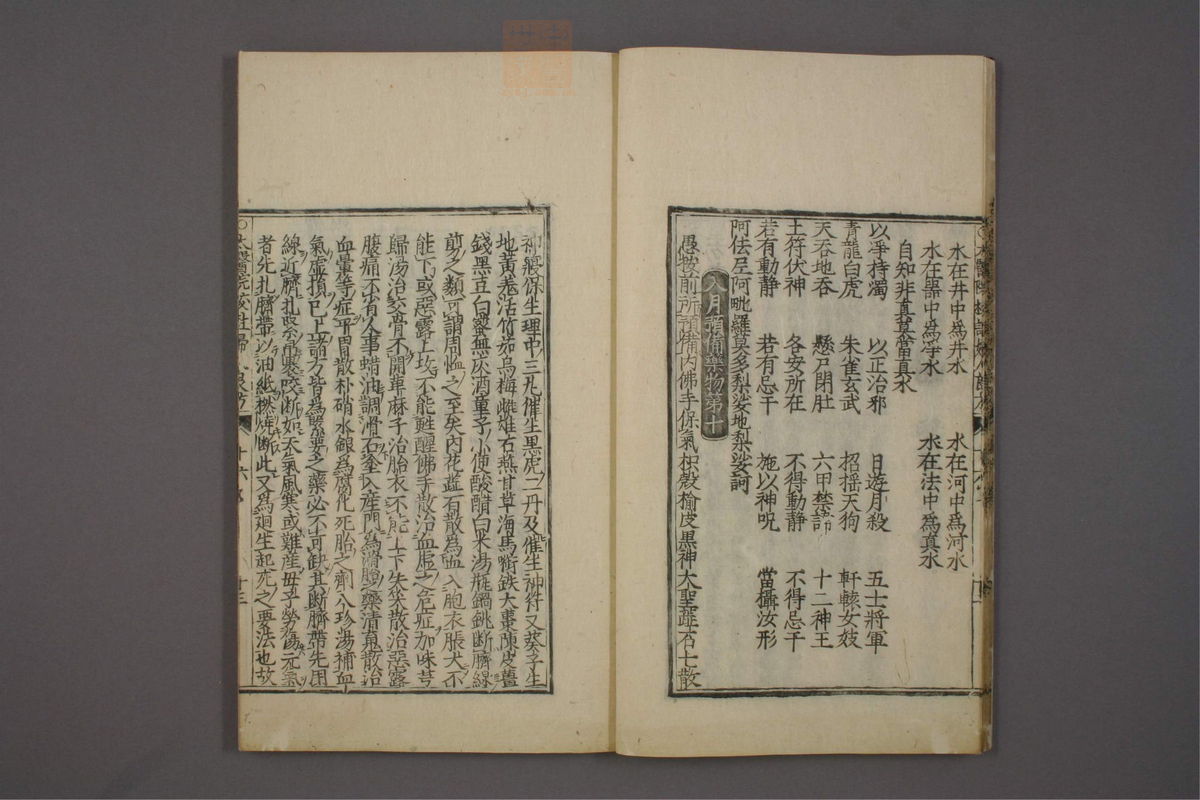 水在井中為井水　水在河中為河水
水在器中為淨水　水在法中為真水
自知非真莫當真水
以淨持濁　以正治邪　日遊月殺　五士將軍
青龍白虎　朱雀玄武　招搖天狗　軒轅女妓
天吞地吞　懸尸閉肚　六甲禁諱　十二神王
土符伏神　各安所在　不得動靜　不得忌干
若有動靜　若有忌干　施以神呪　當攝汝形
阿佉尼阿毗羅莫多梨娑地梨娑訶
八月預備藥物第十
愚按前所預備內佛手保氣枳殼榆皮黑神大聖　石七散
神寢保生理中三丸催生黑虎二丹及催生神符又葵子生
地黃卷活竹茹烏梅雌雄石燕甘草海馬銜鉄大棗陳皮薑
錢黑豆白蜜無灰酒童子小便酸醋白米湯瓶鍋銚斷臍線
剪之類可謂周恤之至矣內花蕋石散為血入胞衣脹大不
能下或惡露上攻不能甦醒佛手散治血虛之危症加味芎
歸湯治交骨不開草麻子治胎衣不能上下失笑散治惡露
腹痛不省人事蜡油調滑石塗入產門為滑胎之藥清魂散治
血暈等症平胃散朴硝水銀為腐化死胎之劑八珍湯補血
氣虛損已上諸方皆為緊要之藥必不可缺其斷臍帶先用
綿近臍扎緊帛裹咬斷如天氣風寒或難產母子勞傷元氣
者先扎臍帶以油紙撚燒斷此又為廻生起死之要法也故
太醫院校註婦人良方　十六　十三